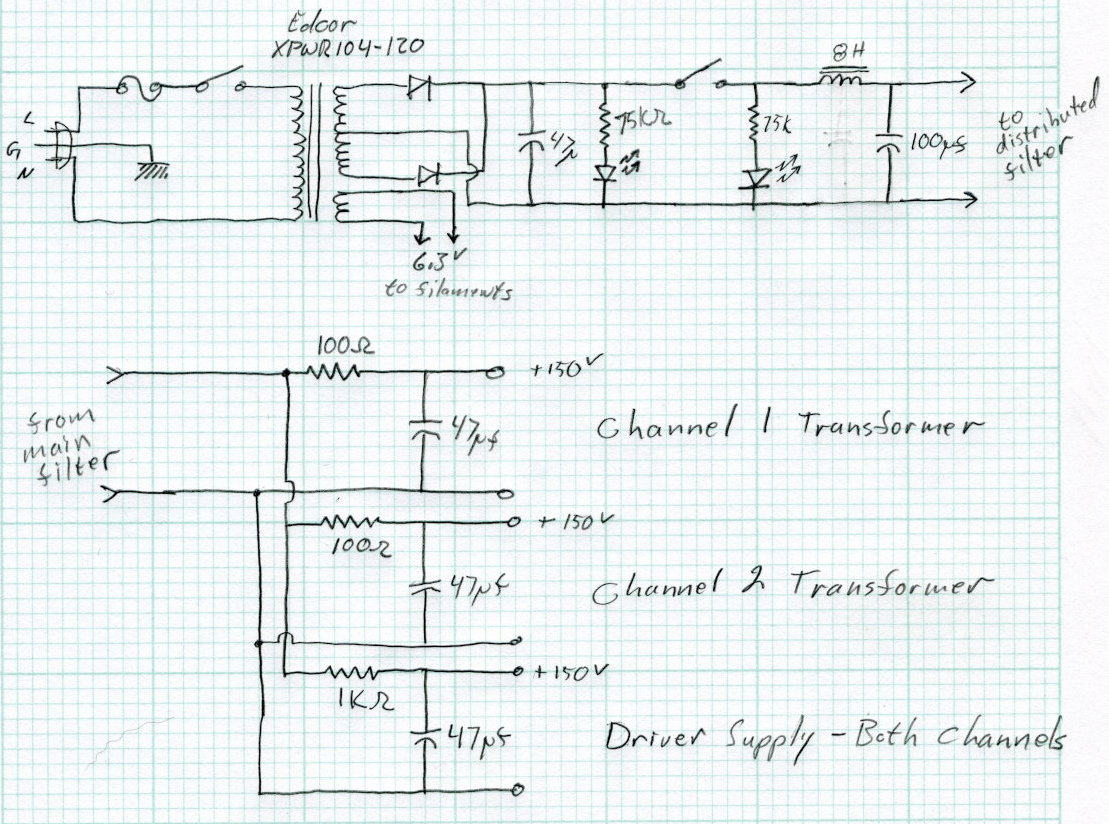 Edcor
XPWR104-120
8H
L
G
N
47µ
75KΩ
75K
100µf
to
distributed
filter
6.3V
to filaments
100Ω
+150V
from
main
filter
47µf
Channel 1 Transformer
+150V
100Ω
47µf
Channel 2 Transformer
+150V
1KΩ
47µf
Driver Supply - Both Channels